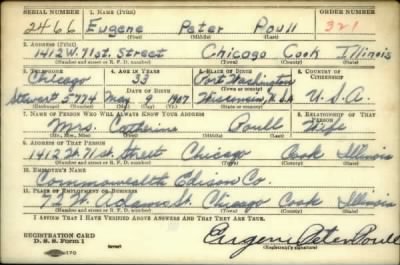 SERIAL NUMBER 1. NAME (Print) ORDER NUMBER
2466 Eugene Peter Poull 321
(First) (Middle) (Last)
2. ADDRESS (Print)
1412 W. 71st. Street Chicago Cook Illinois
(Number and street or R. F. D. number) (Town) (County) (State)
3. TELEPHONE 4. AGE IN YEARS 5. PLACE OF BIRTH 6. COUNTRY OF CITIZENSHIP
Chicago 33 Port Washington
DATE OF BIRTH (Town or county)
Stewart 5774 May 9 1907 Wisconsin, U.S.A U.S.A.
(Exchange) (Number) (Mo.) (Day) (Yr.) (State or country)
7. NAME OF PERSON WHO WILL ALWAYS KNOW YOUR ADDRESS 8. RELATIONSHIP OF THAT PERSON
Mrs. Catherine Poull Wife
(Mr., Mrs., Miss) (First) (Middle) (Last)
9. ADDRESS OF THAT PERSON
1412 W. 71st Street Chicago Cook Illinois
(Number and street or R. F. D. number) (Town) (County) (State)
10. EMPLOYER'S NAME
Commonwealth Edison Co.
11. PLACE OF EMPLOYMENT OR BUSINESS
72 W. Adams St. Chicago Cook Illinois
(Number and street or R. F. D. number) (Town) (County) (State)
I AFFIRM THAT I HAVE VERIFIED ABOVE ANSWERS AND THAT THEY ARE TRUE.
REGISTRATION CARD
D. S. S. Form 1 Eugene Peter Poull
(over) (Registrant's signature)